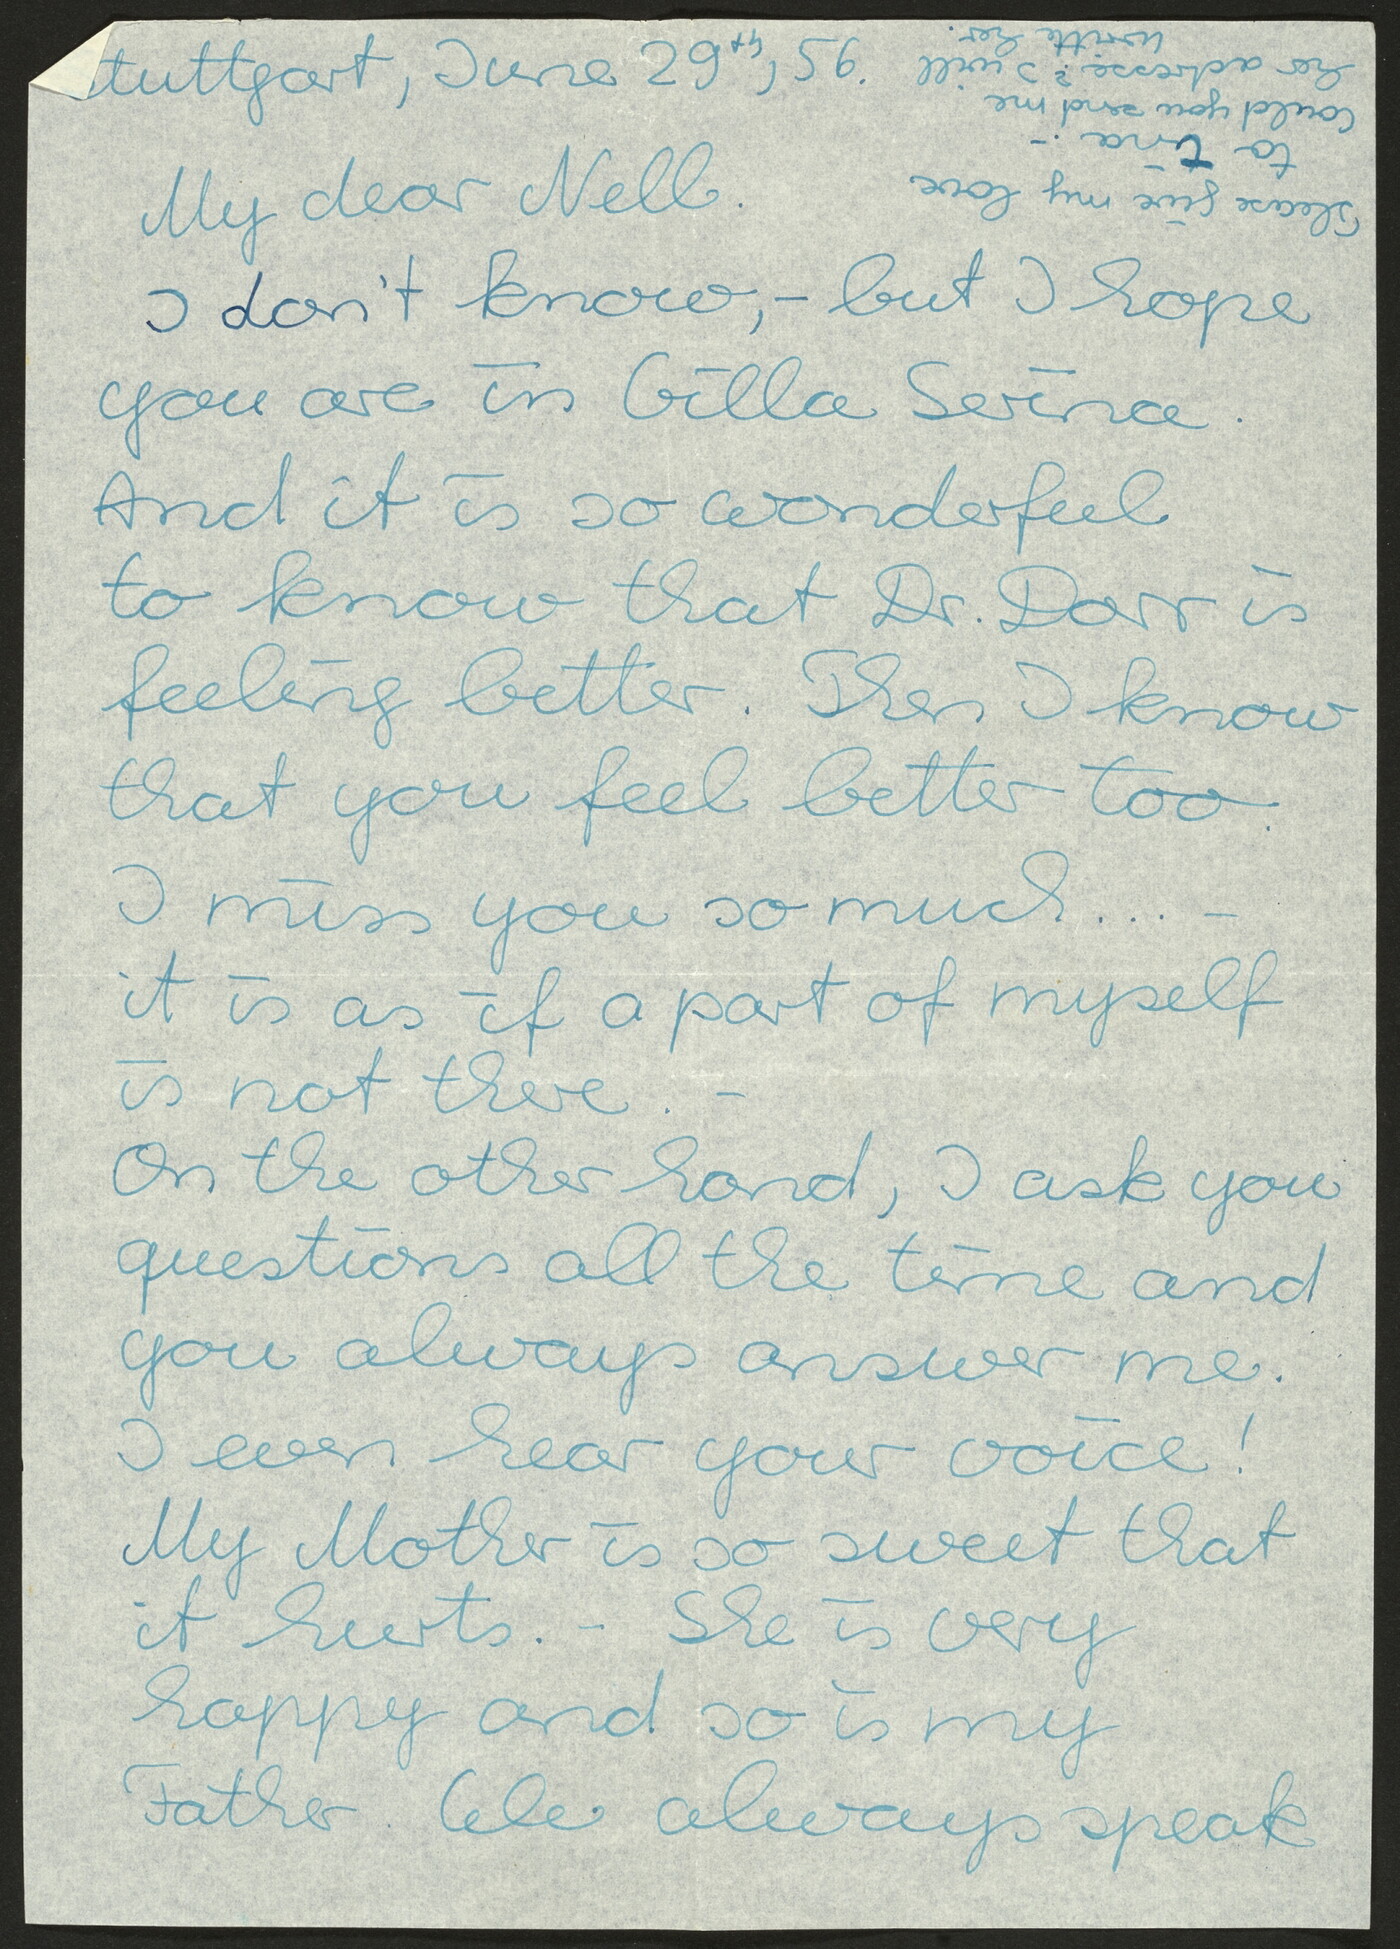 Stuttgart, June 29th, 56.
My dear Nell.
I don't know, – but I hope
you are in Villa Serina.
And it is so wonderful
to know that Dr. Dorr is
feeling better. Then I know
that you feel better too.
I miss you so much... –
it is as if a part of myself
is not there. –
On the other hand, I ask you
questions all the time and
you always answer me.
I even hear your voice!
My Mother is so sweet that
it hurts. – She is very
happy and so is my
Father. We always speak
Please give my love
to Tina. –
Could you send me
her adresse? I will
writte her.